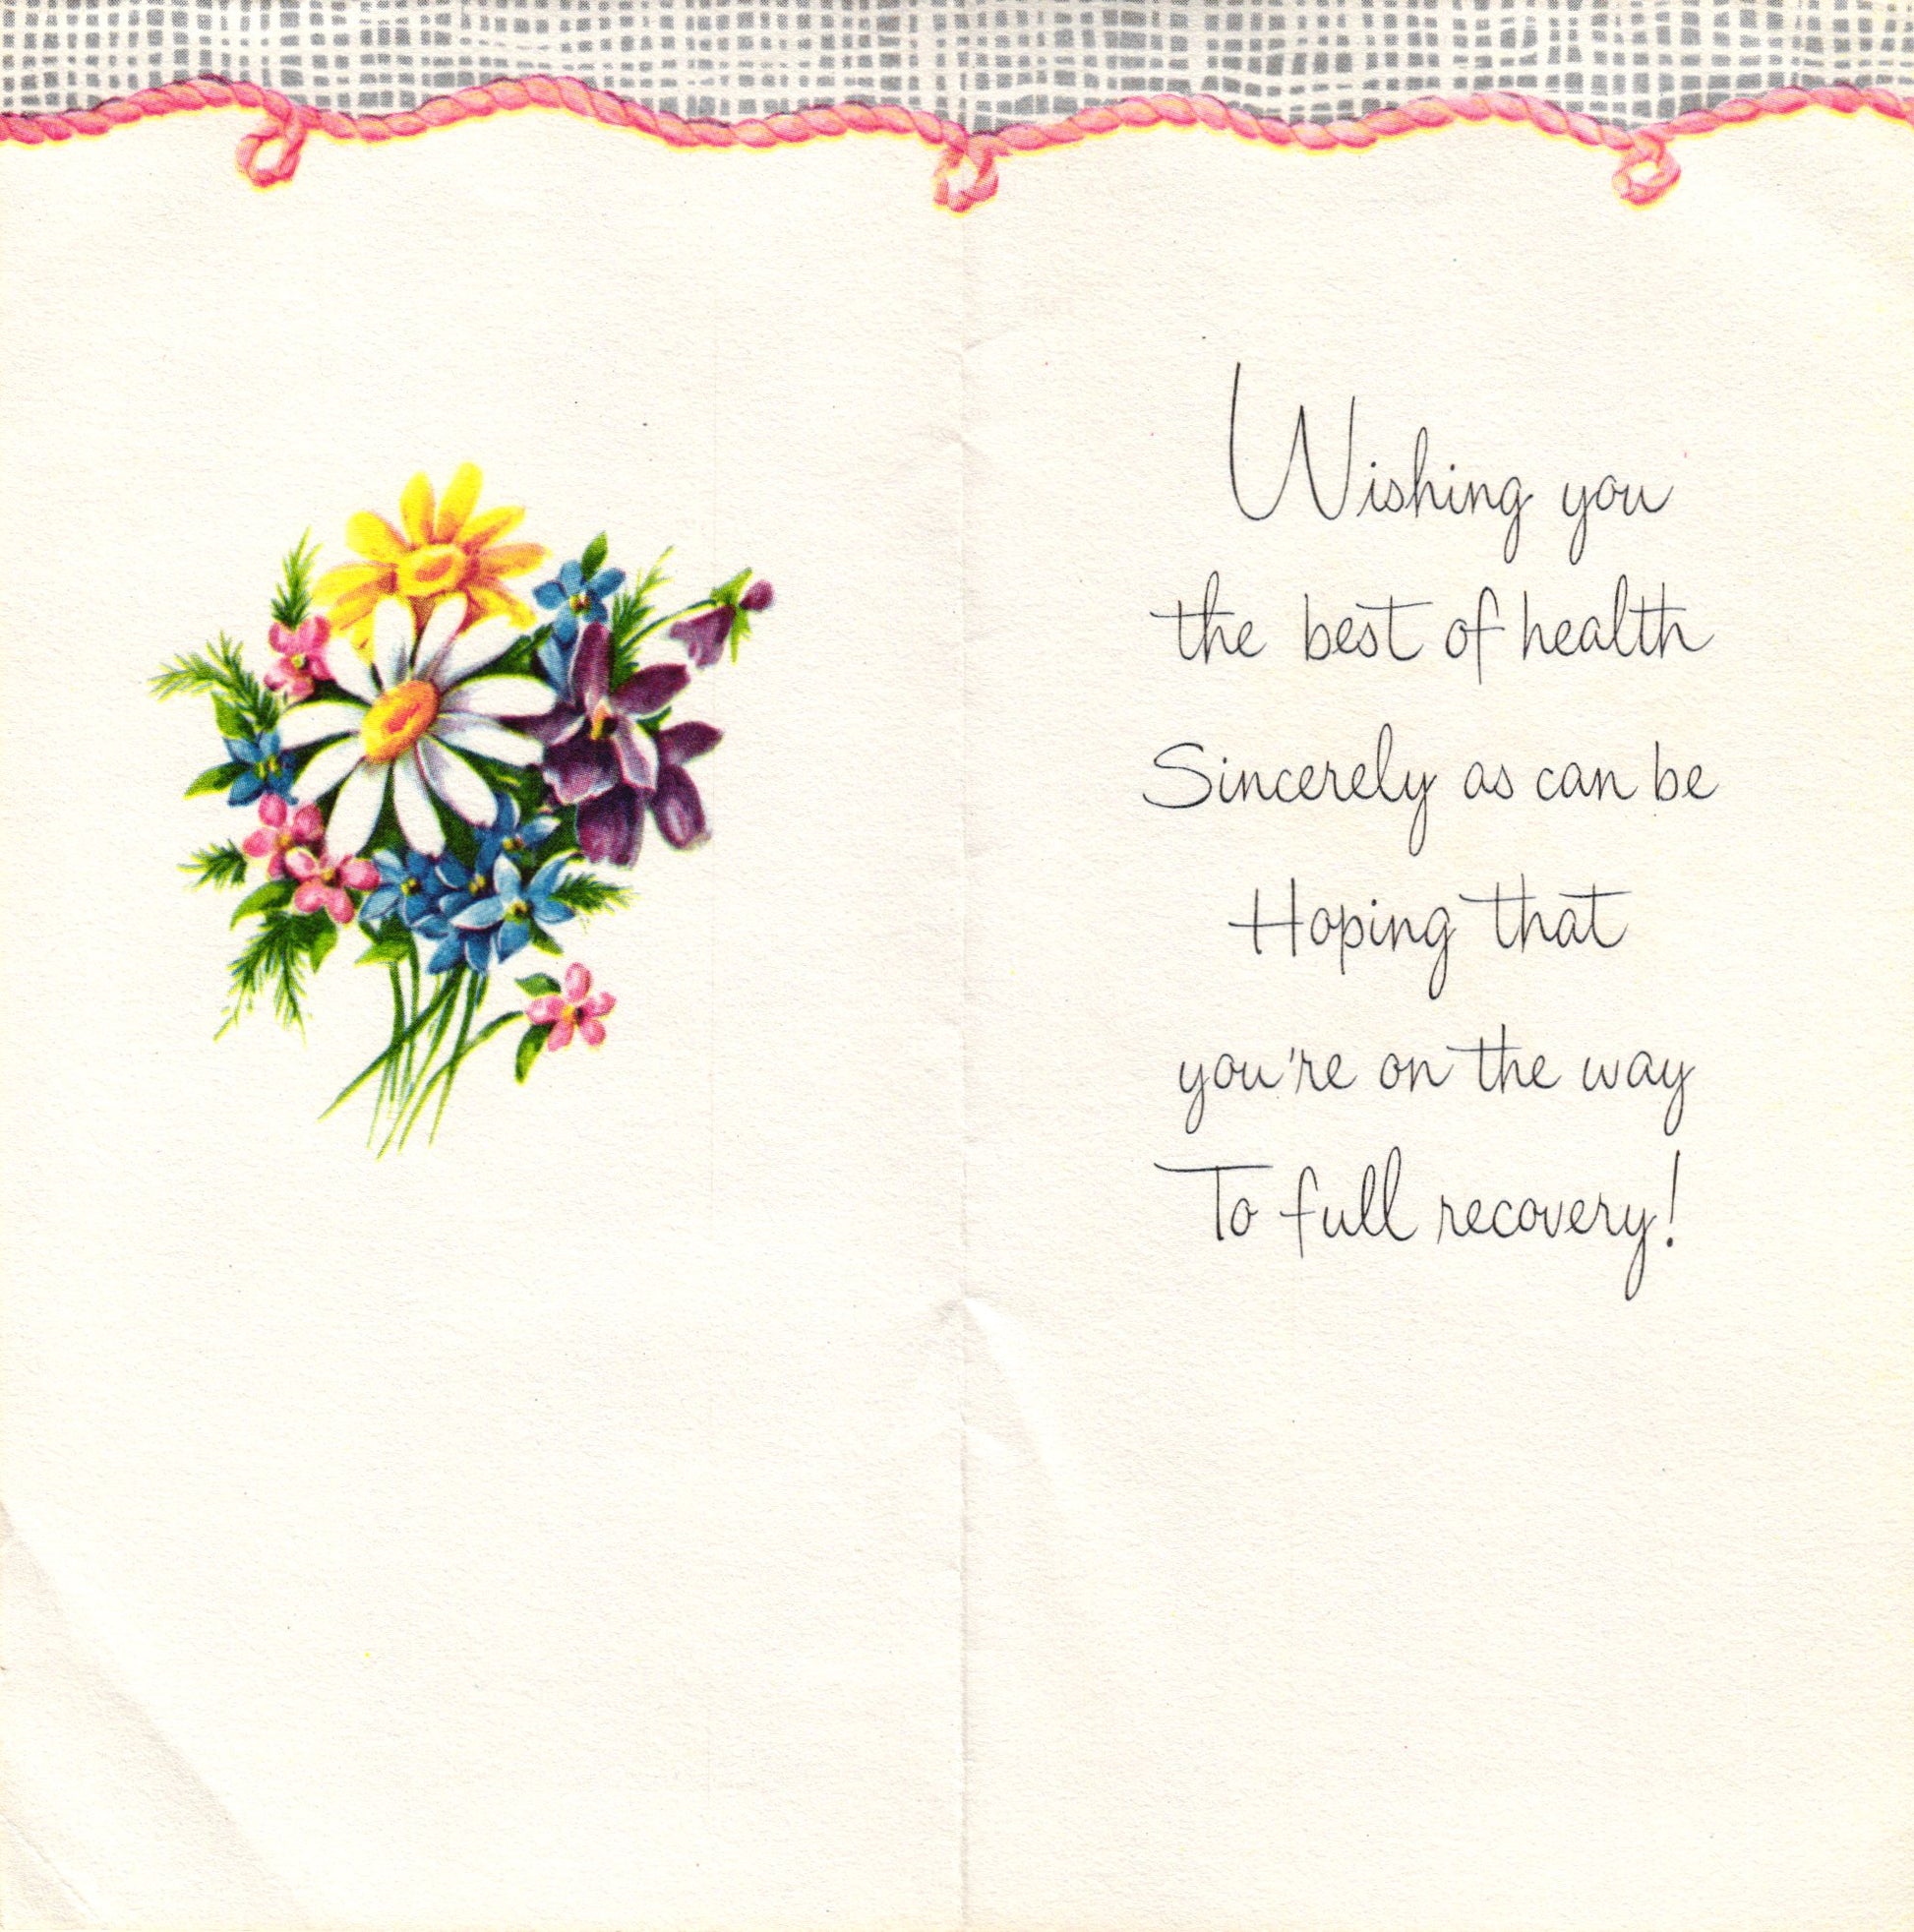 Wishing you
the best of health
Sincerely as can be
Hoping that
you're on the way
To full recovery!